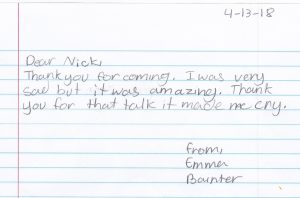 4-13-18
Dear Nick,
Thank you for coming. I was very
sad but it was amazing. Thank
you for that talk it made me cry.
From,
Emma
Bainter